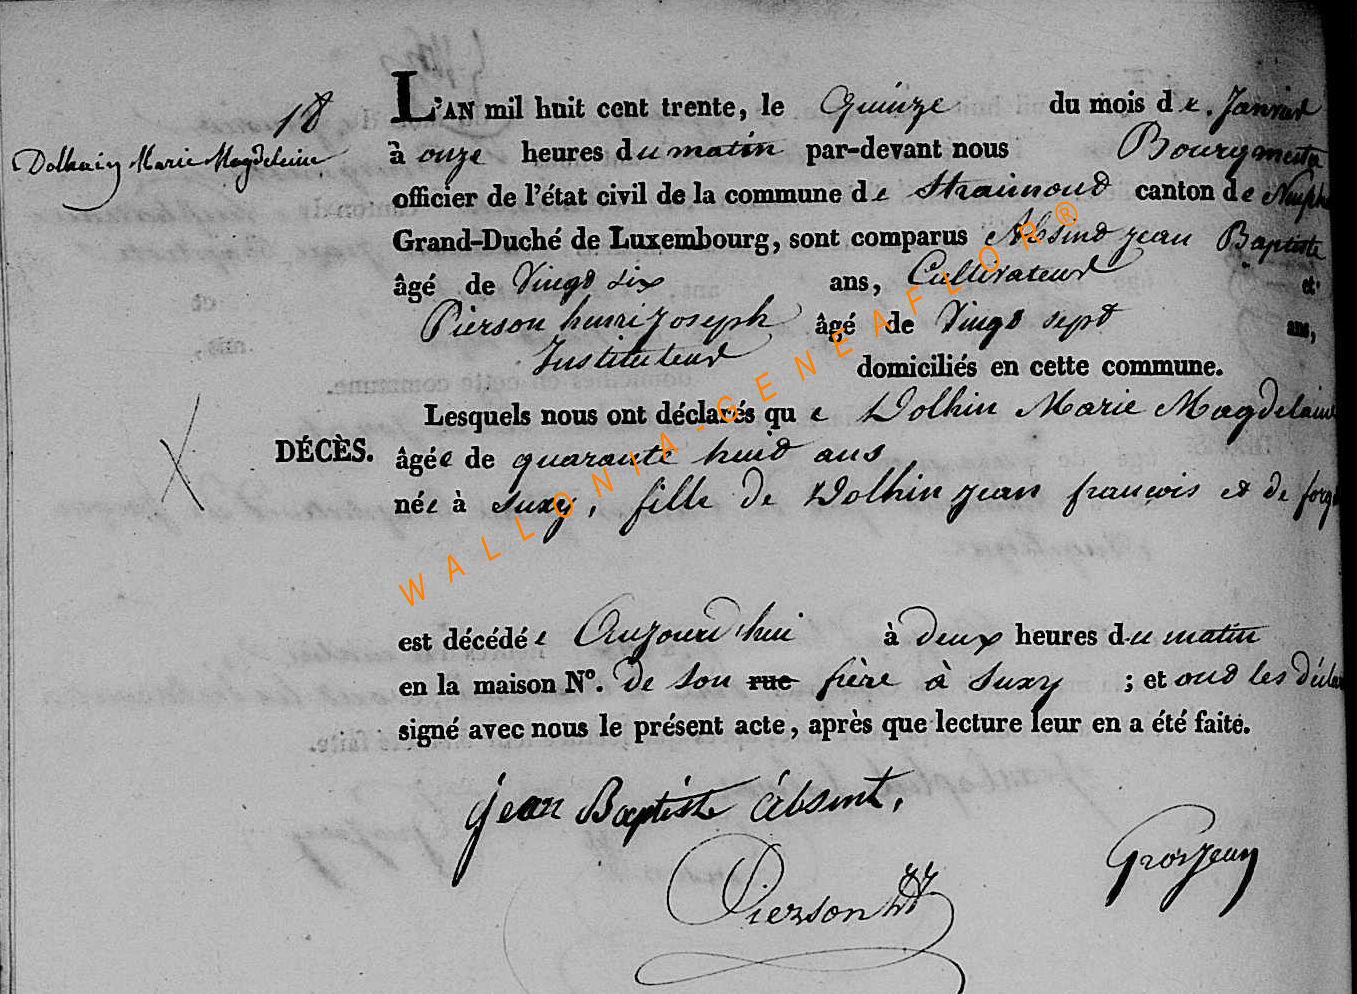 18
Dolhain Marie Magdeleine
L'AN mil huit cent trente, le Quinze du mois de Janvier
à onze heures du matin par-devant nous Bourgmestre
officier de l'état civil de la commune de Straimont canton de
Grand-Duché de Luxembourg, sont comparus Absint jean Baptiste
âgé de Vingt six ans, Cultivateur et
Pierson henri joseph âgé de Vingt sept ans,
Instituteur domiciliés en cette commune.
Lesquels nous ont déclarés que Dolhin Marie Magdelaine
DÉCÈS.
âgée de quarante huit ans
née à Suxy, fille de Dolhin jean françois et de
est décédée Aujourd'hui à deux heures du matin
en la maison N°. de son rue frère à Suxy ; et ont les
signé avec nous le présent acte, après que lecture leur en a été faite.
jean Baptiste Absint,
Grosjean
Pierson
WALLONIA-GENEAFLOR®